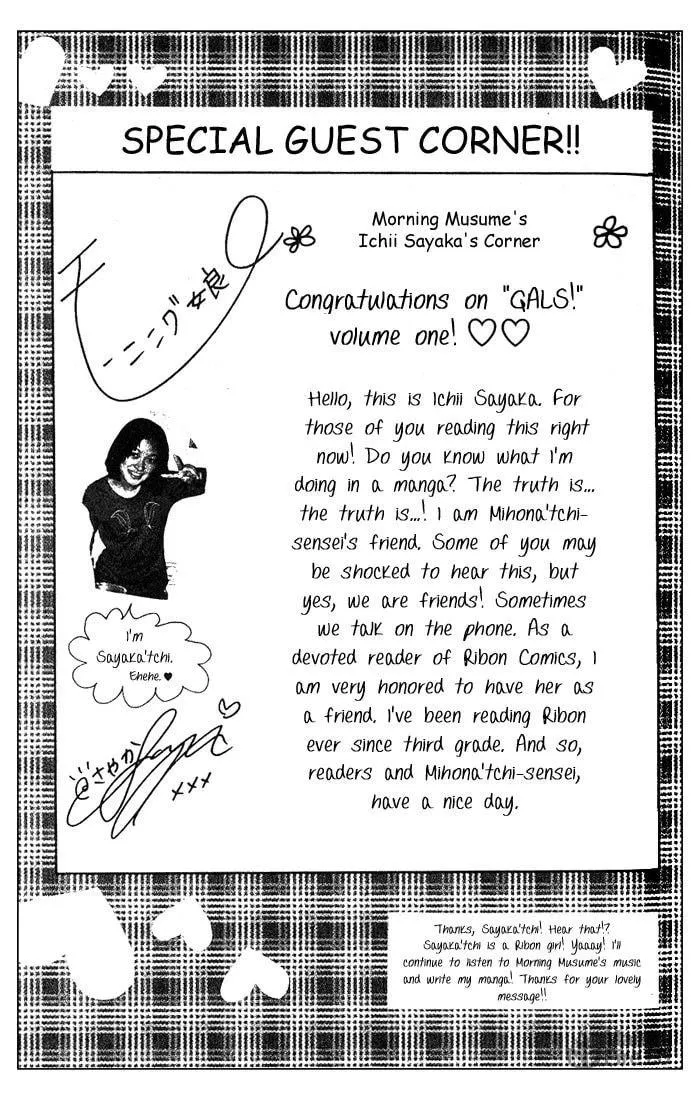 SPECIAL GUEST CORNER!!
モーニング娘
Morning Musume's
Ichii Sayaka's Corner
Congratulations on "GALS!"
volume one! ♡♡
Hello, this is Ichii Sayaka. For
those of you reading this right
now! Do you know what I'm
doing in a manga? The truth is...
the truth is...! I am Mihona'tchi-
sensei's friend. Some of you may
be shocked to hear this, but
yes, we are friends! Sometimes
we talk on the phone. As a
devoted reader of Ribon Comics, I
am very honored to have her as
a friend. I've been reading Ribon
ever since third grade. And so,
readers and Mihona'tchi-sensei,
have a nice day.
I'm
Sayaka'tchi.
Ehehe.♥
さやか
xxx
Thanks, Sayaka'tchi! Hear that!?
Sayaka'tchi is a Ribon girl! Yaaay! I'll
continue to listen to Morning Musume's music
and write my manga! Thanks for your lovely
message!!